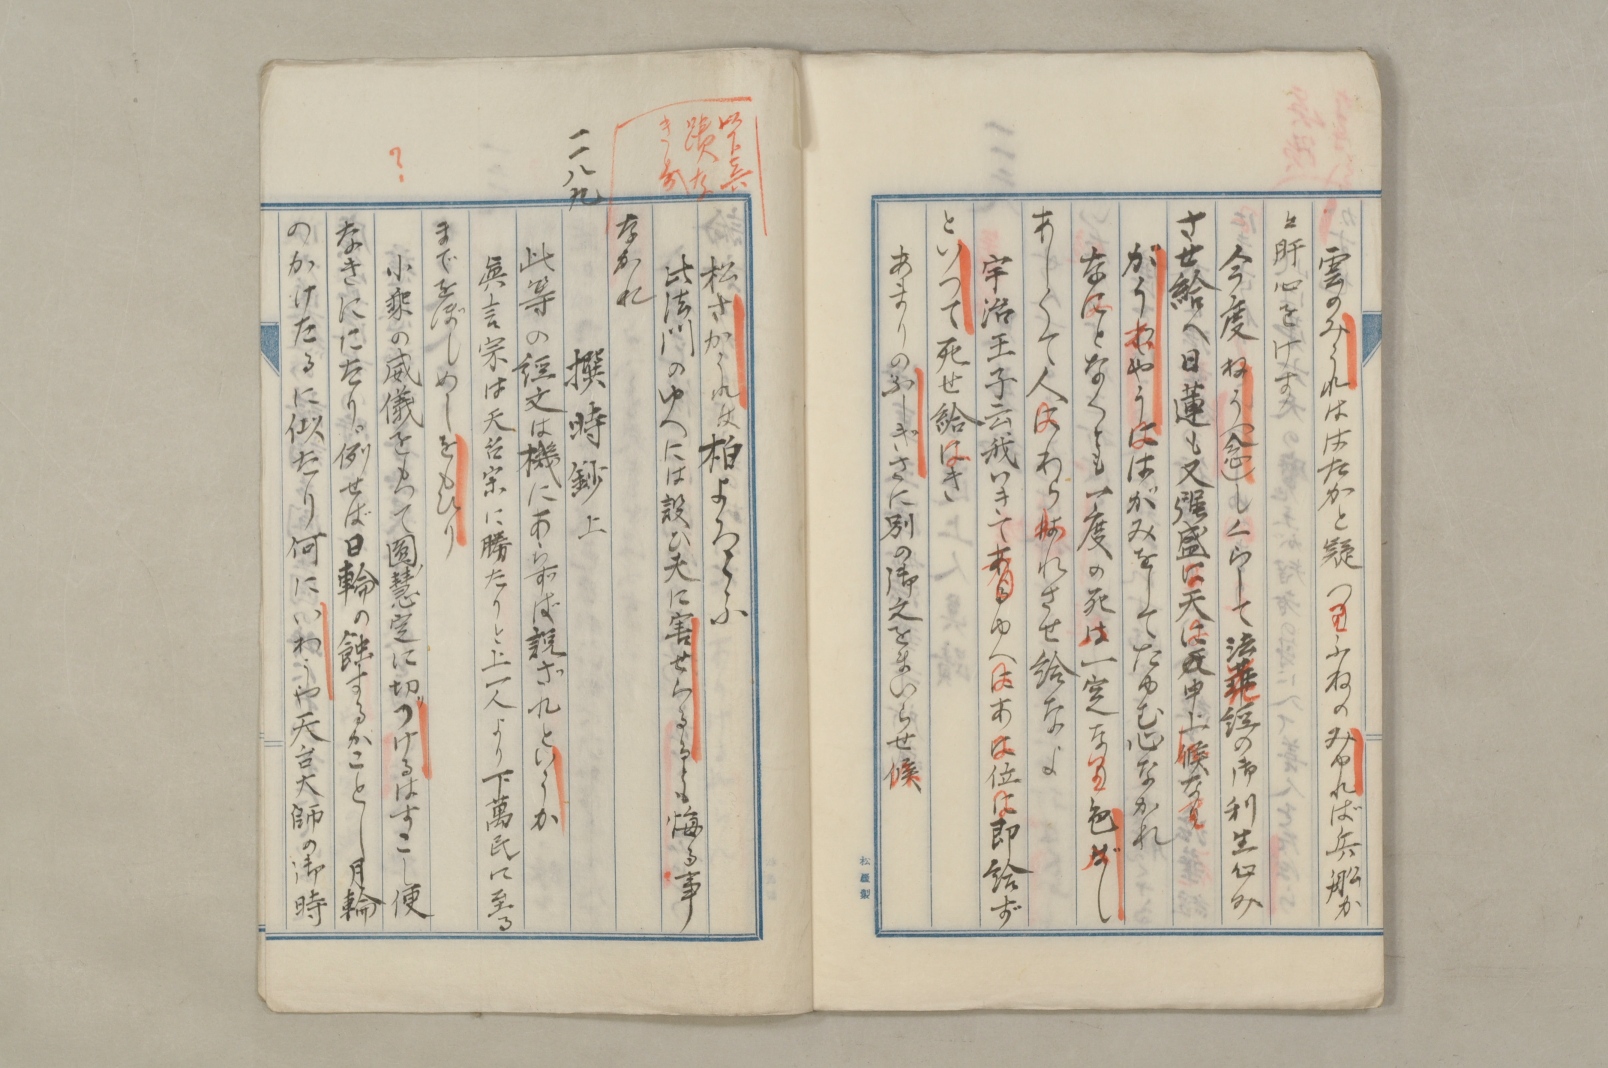 雲のみうれははたかと疑つりふねのみゆれば兵船か
と肝心をけす
今度ねうし(念)もくらして法華経の御利生心み
させ給へ日蓮も又强盛に天に又申上候なり
がうねやうははがみをしてたゆむ心なかれ
なにとなくとも一度の死は一定なり色ばし
あしくて人にわらはれさせ給なよ
宇治王子云我いきてあるゆへにあに位に即給ず
といつて死せ給にき
あまりのふしぎさに別の御文をまいらせ候
松屋製
以下真
蹟な
き分
松さかうれば柏よろこふ
此法門のゆへには設ひ夫に害せらるるとも悔る事
なかれ
一一八九
撰時鈔上
此等の経文は機にあらずば説ざれというか
真言宗は天台宗に勝たりと上一人より下萬民に至る
までをぼしめしをもひり
?
小乘の威儀をもつて圓慧定に切つけるはすこし便
なきににたり例せば日輪の蝕するかことし月輪
のかけたるに似たり何にいわうや天台大師の御時